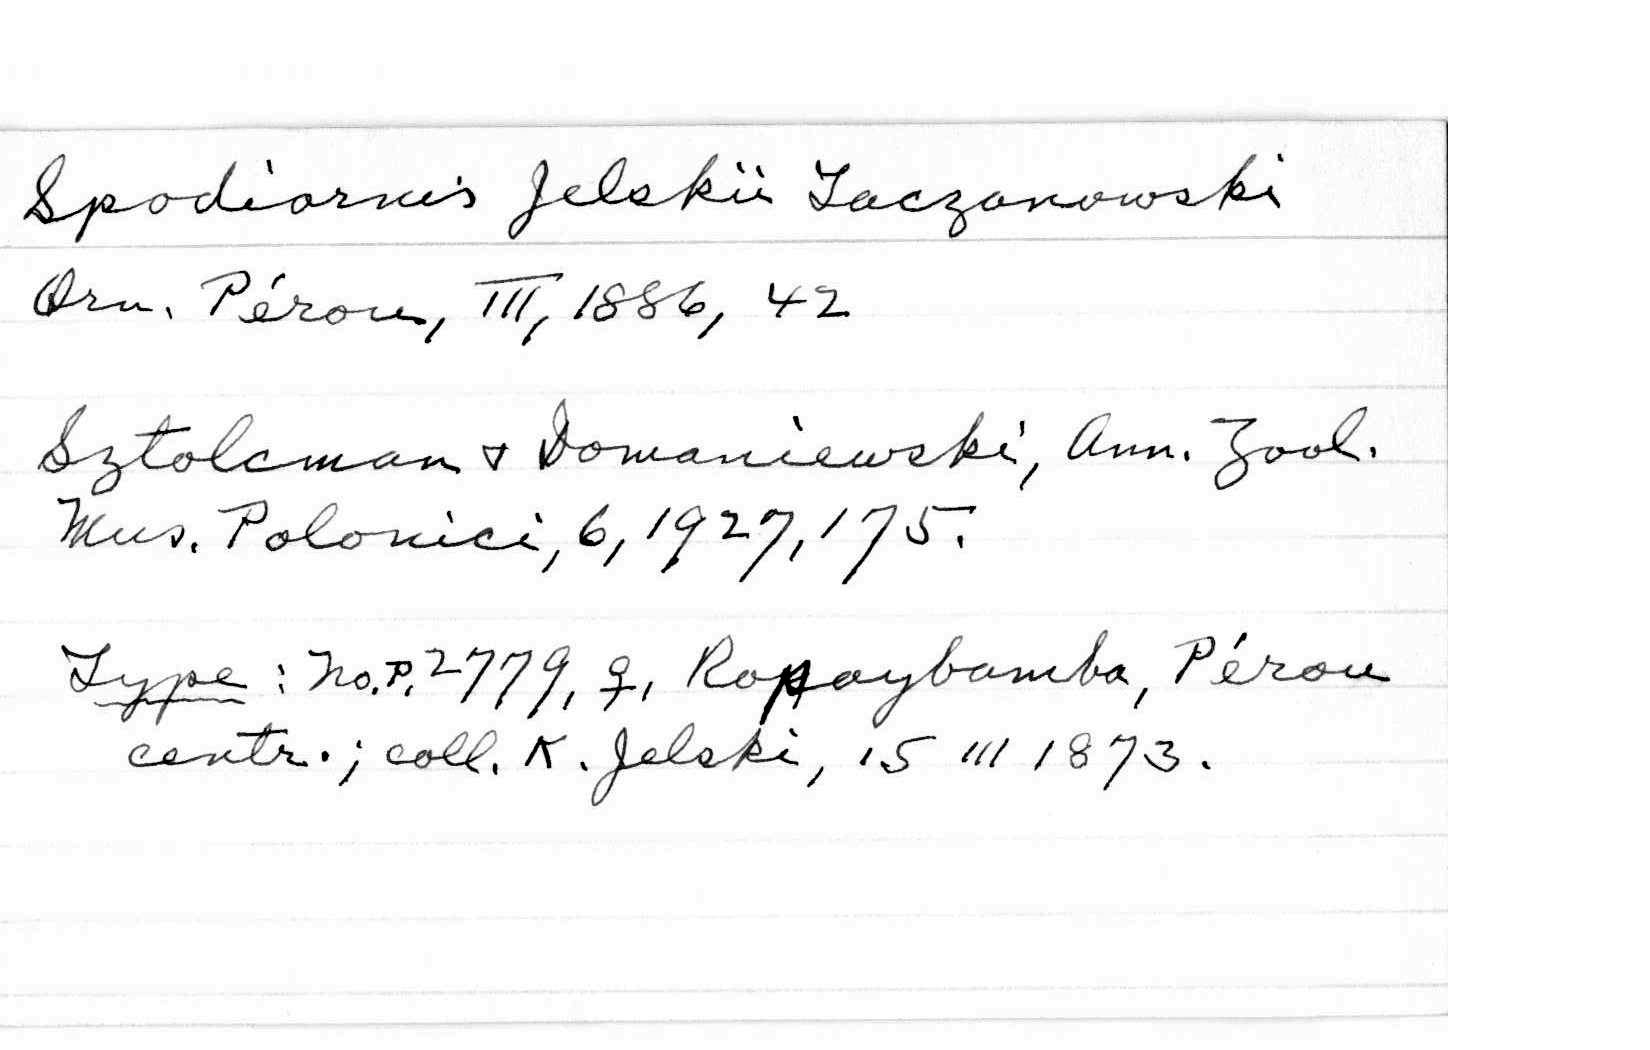 Spodiornis Jelskii Taczanowski
Orn. Pérou, III, 1886, 42
Sztolcman & Domaniewski, Ann. Zool.
Mus. Polonici, 6, 1927, 175.
Type: No. P. 2779, ♀, Ropaybamba, Pérou
centr.; coll. K. Jelski, 15 III 1873.